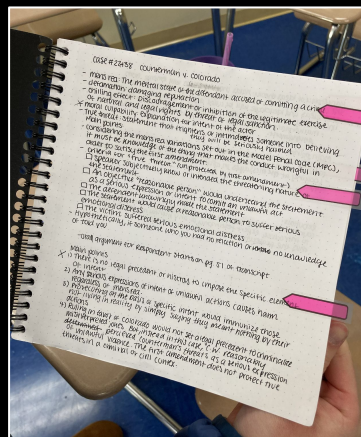 Case # 22-138 Counterman v. Colorado
- mens rea: The mental state of the defendant accused of committing a crime
- defamation: damaging reputation
- chilling effect: discouragement or inhibition of the legitimate exercise
of natural and legal rights by threat of legal sanction.
* moral culpability: explanation for intent of the actor
- True threat: statement that frightens or intimidates someone into believing
that will be seriously harmed
Main points
- considering the mens rea variations set out in the Model Penal Code (MPC),
it must be knowledge of the thing that makes the conduct wrongful in
order to satisfy the first amendment.
- criteria for "True threat" (un protected by first amendment)
□ Speaker subjectively knew or intended the threatening nature of
the statement
□ An objective "reasonable person" would understand the statement
as a serious expression of intent to commit an unlawful act
□ The defendant knowingly made the statement
□ The statement would cause a reasonable person to suffer serious
emotional distress
□ The victim suffered serious emotional distress
- Hypothetically, if someone who you had no relation or no knowledge
of told you
-Oral argument for Respondent starts on pg 51 of transcript
Main points
1) There is no legal precedent or history to impose the specific element
of intent
2) Any serious expressions of intent of unlawful actions causes harm
regardless of mens rea
3) Prosecuting on the basis of specific intent would immunize those
not living in reality by simply saying they meant nothing by their
actions
4) Ruling in favor of Colorado would not set a legal precedent to criminalize
misinterpreted jokes. But instead in this case, C.W. reasonably
perceived Counterman's threats as a serious expression
of unlawful violence. The first amendment does not protect true
threats in a criminal or civil context.